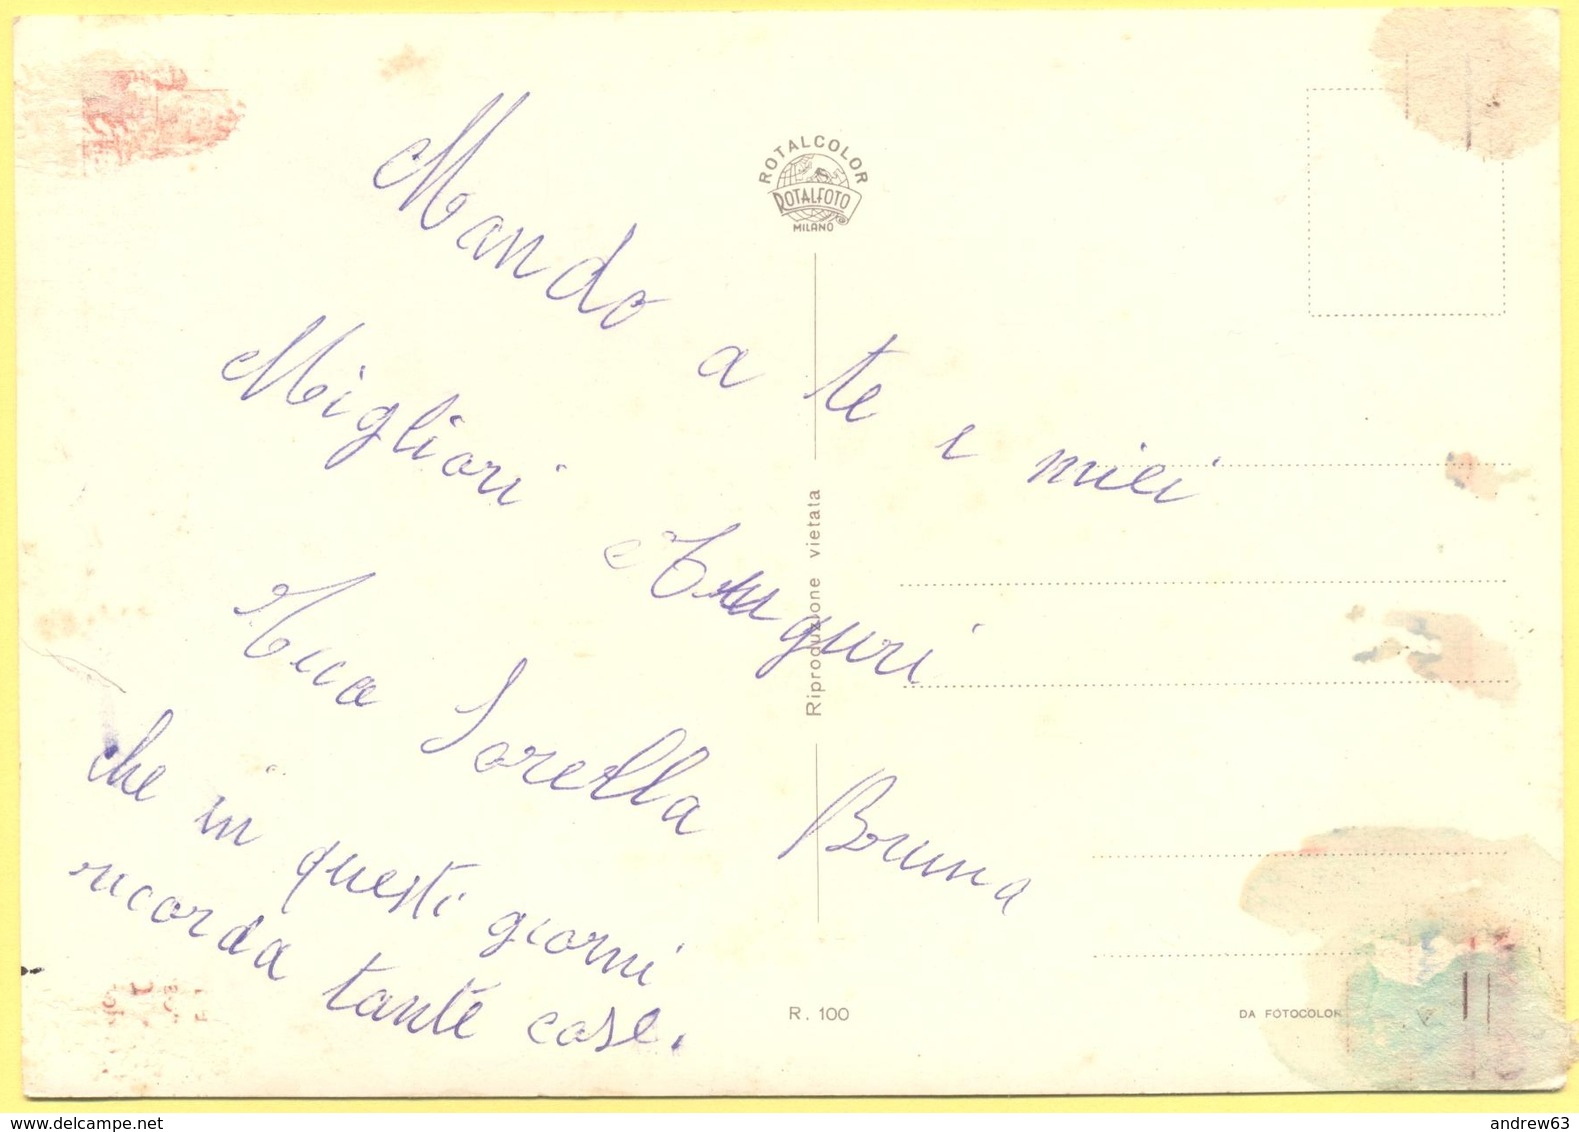 ROTALCOLOR
ROTALFOTO
MILANO
Mando a te i miei
Migliori Auguri
Tua Sorella Bruna
che in questi giorni
ricorda tante cose.
Riproduzione vietata
R. 100
DA FOTOCOLOR
www.delcampe.net
andrew63